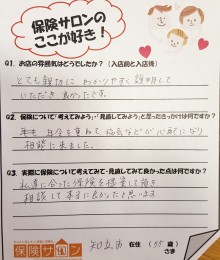 保険サロンの
ここが好き！
Q1. お店の雰囲気はどうでしたか？（入店前と入店後）
とても親切に わかりやすく説明して
いただき 良かったです。
Q2. 保険について「考えてみよう」・「見直してみよう」と思ったきっかけは何ですか？
年を重ねて 病気などが 心配になり
相談に来ました。
Q3. 実際に保険について考えてみて・見直してみて良かった点は何ですか？
私達に合った保険を提案して頂き
相談して本当に良かったと思います
保険サロン
知立市 在住 （ 55 歳）
さま